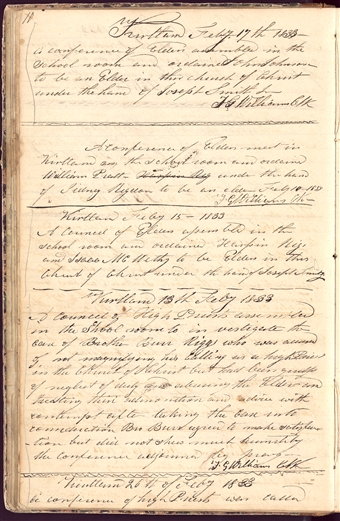 10
Kirtland Feby 17th 1833
a conference of Elders assembled in the
School room and ordained John Johnson
to be an Elder in this church of Christ
under the hand of Joseph Smith Jr
F G Williams Clk
A conference of Elders meet in
Kirtland in the School room and ordained
William Pratt under the hand
of Sidney Rigdon to be an elder Feby 10 1833
F G Williams Clk
Kirtland Feby 15 - 1833
A Council of Elders assembled in the
School room and ordained Harpin Rigs
and Isaac McWethy to be Elders in this
Church of Christ under the hand of Joseph Smith Jr
Kirtland 13th Feby 1833
A Council of High Priests assembled
in the School room to investigate the
case of Brother Burr Riggs who was accused
of not magnifying his calling as a high Priest
in the Church of Christ but had been guilty
of neglect of duty of abusing the Elders in
treating their admonition and advice with
contempt after taking the case into
consideration Bro Burr agreed to make satisfac
tion but did not show much humility
the Conference adjourned by prayer
F G Williams Clk
Kirtland 26th of Feby 1833
a conference of high Priests was called